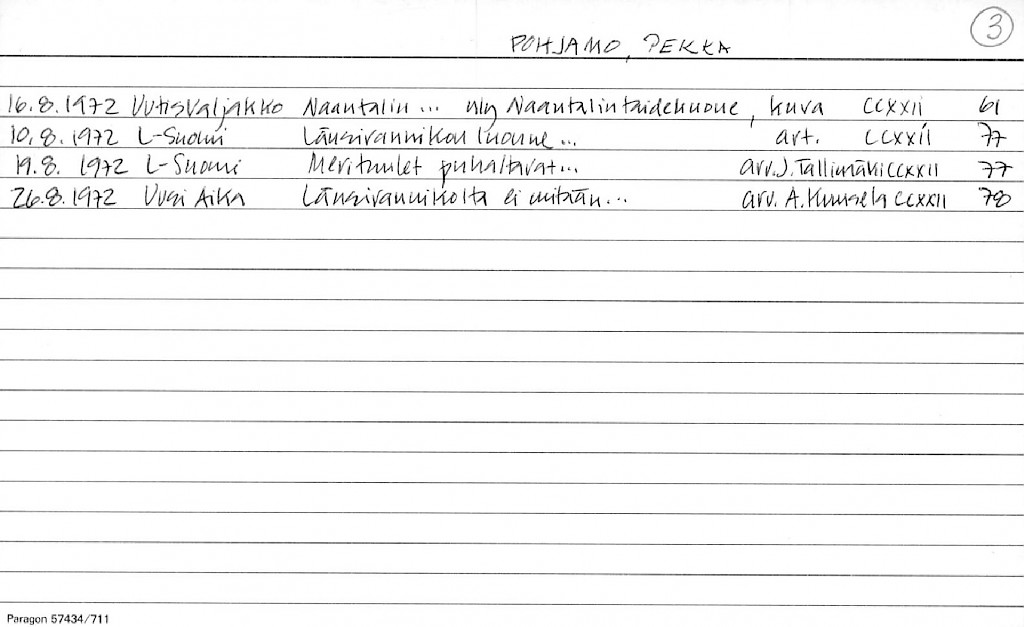 3
POHJAMO, PEKKA
16.8.1972 Uutisvaljakko Naantalin... nly Naantalin taidehuone, kuva CCXXII 61
10.8.1972 L-Suomi Länsirannikon luonne... art. CCXXII 77
19.8. 1972 L-Suomi Merituulet puhaltavat... arv. J. Tallimäki CCXXII 77
26.8.1972 Uusi Aika Länsirannikolta ei mitään... arv. A. CCXXII 78
Paragon 57434/711